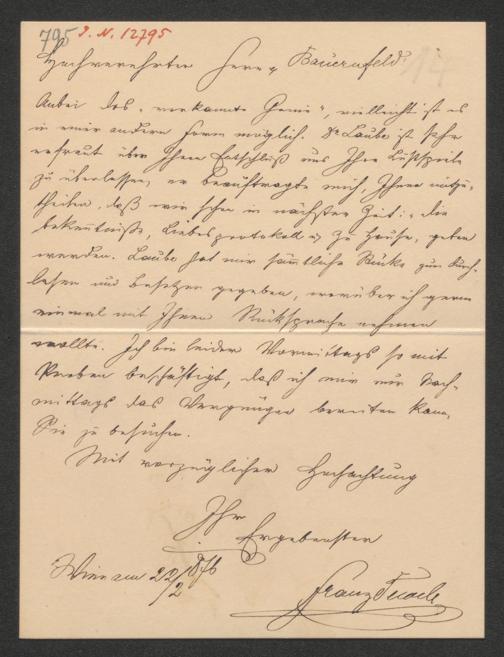 795 I. N. 12795
14
Hochverehrter Herr v Bauernfeld!
Anbei das „verkannte Genie", vielleicht ist es
in einer andern Form möglich. Dr Laube ist sehr
erfreut über Ihren Entschluß uns Ihre Lustspiele
zu überlassen, er beauftragte mich, Ihnen mitzu-
theilen, daß wir schon in nächster Zeit: „die
Bekenntniße, Liebesprotokoll u Zu Hause, geben
werden. Laube hat mir sämtliche Stücke zum Durch-
lesen und besetzen gegeben, worüber ich gern
einmal mit Ihnen Rücksprache nehmen
wollte. Ich bin leider Vormittags so mit
Proben beschäftigt, daß ich mir nur Nach-
mittags das Vergnügen bereiten kann,
Sie zu besuchen.
Mit vorzüglicher Hochachtung
Ihr
Ergebenster
Wien am 22/2 876
Franz